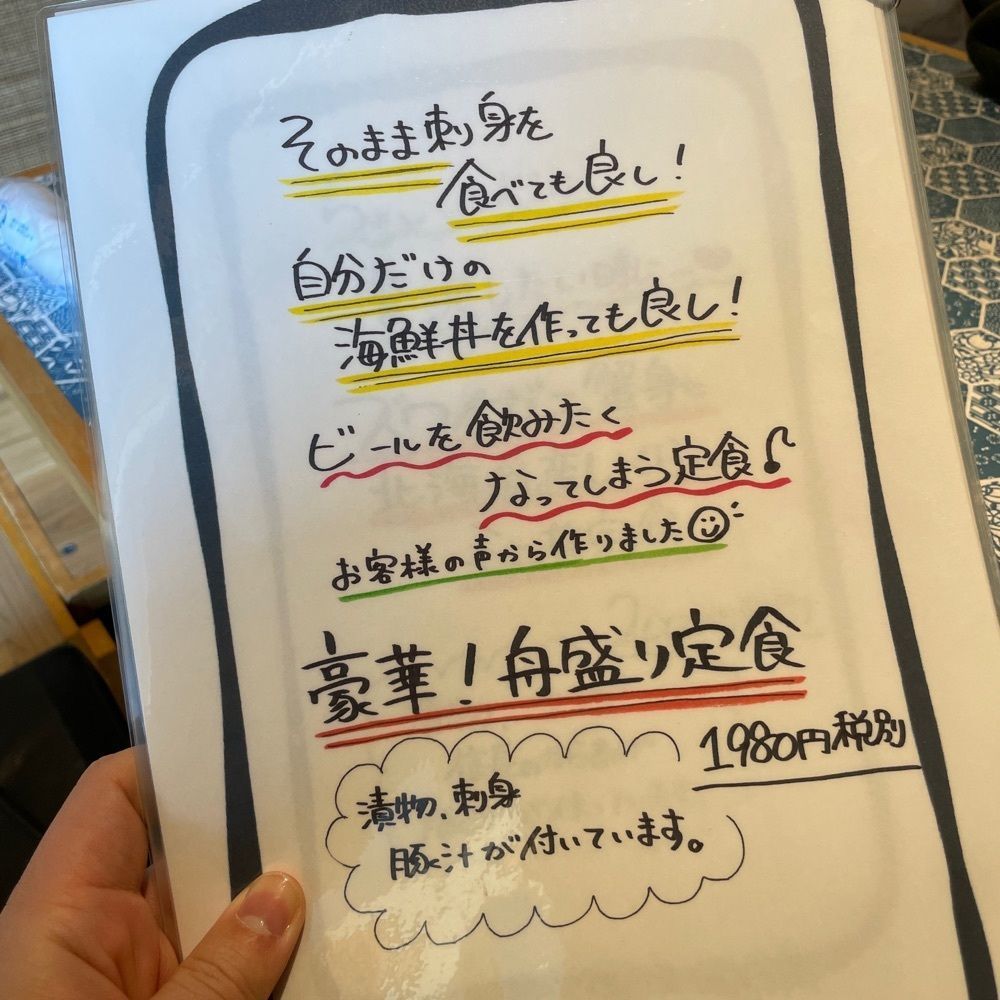 そのまま刺身を
食べても良し!
自分だけの
海鮮丼を作っても良し!
ビールを飲みたく
なってしまう定食♪
お客様の声から作りました☺
豪華!舟盛り定食
1980円税別
漬物、刺身
豚汁が付いています。